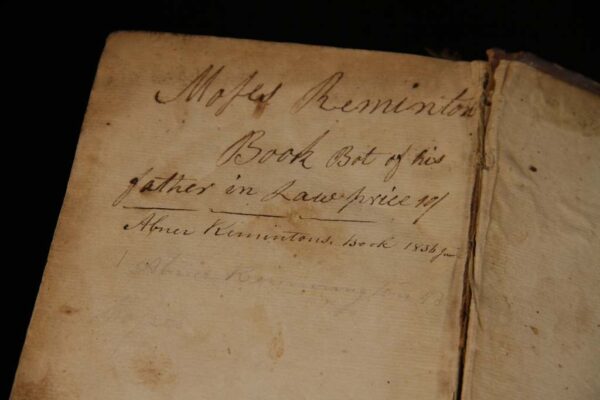 Moſes Reminton
Book Bot of his
father in Law price
Abner Remintons. Book 1836
Abner Remmington